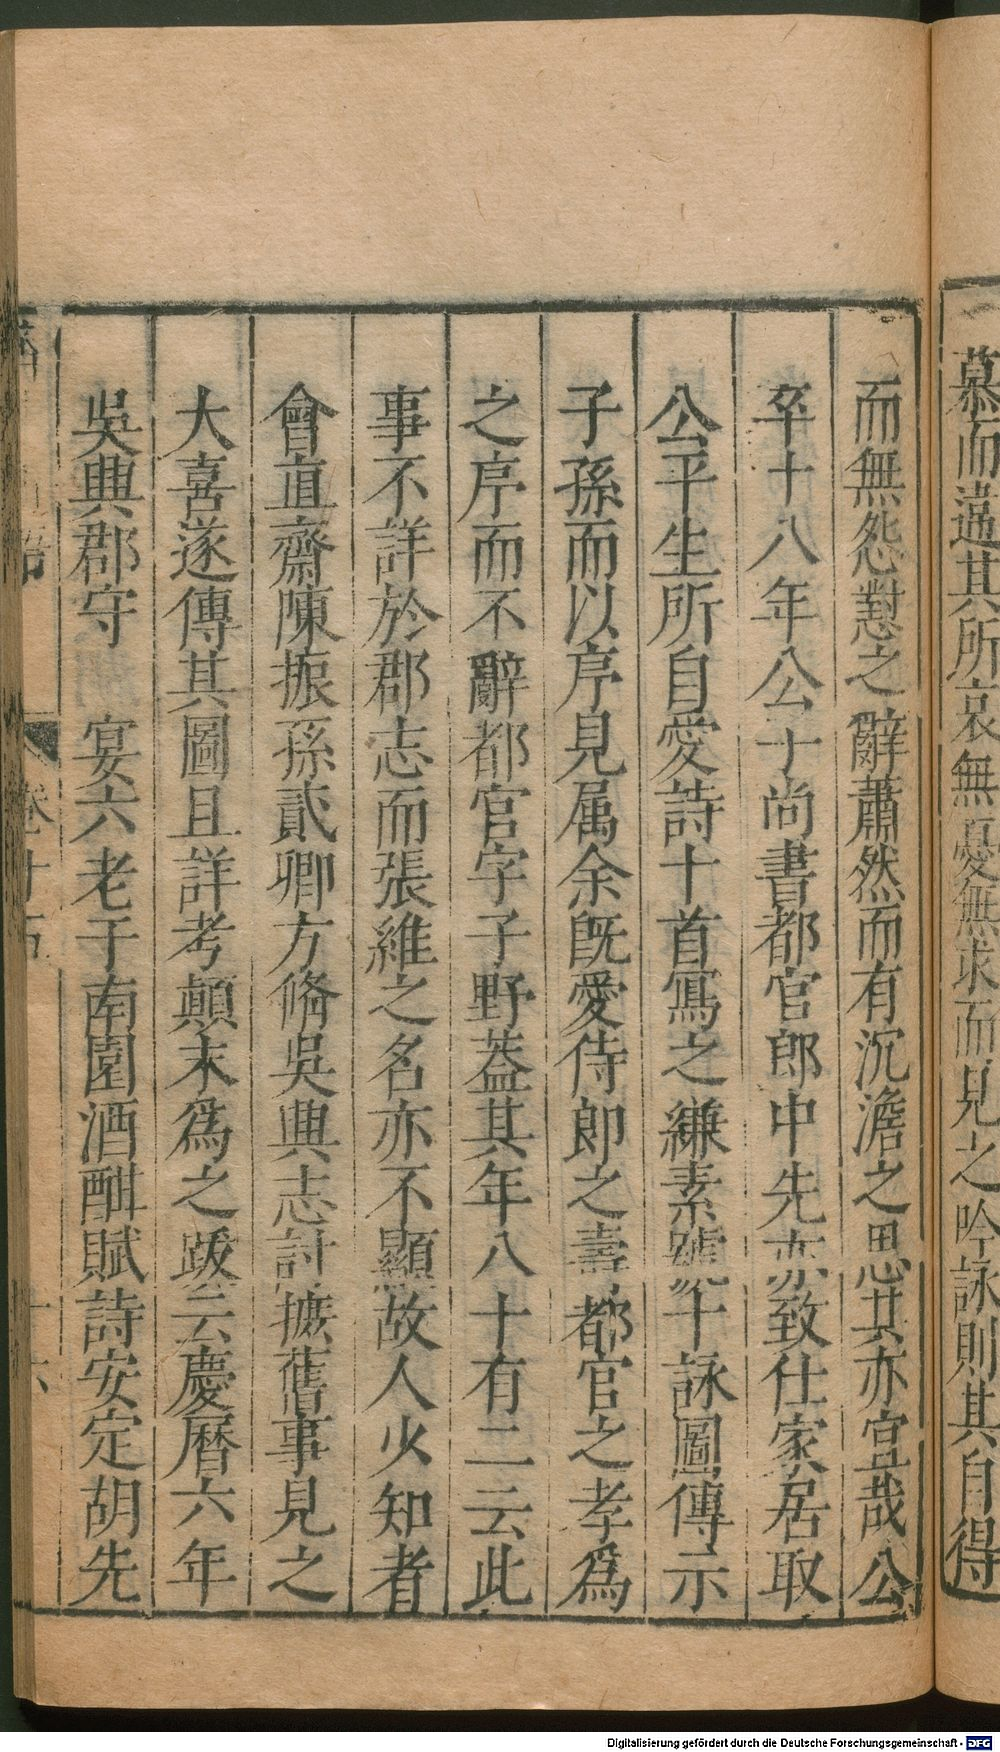 慕而遊其所哀無憂無求而見之吟詠則其自得
而無怨懟之辭蕭然而有沉澹之思其亦宜哉公
卒十八年公子尚書都官郎中先亦致仕家居取
公平生所自愛詩十首寫之縑素號十詠圖傳示
子孫而以序見属余旣愛侍郎之壽都官之孝爲
之序而不辭都官字子野蓋其年八十有二云此
事不詳於郡志而張維之名亦不顯故人少知者
會直齋陳振孫貳卿方脩吳興志討摭舊事見之
大喜遂傳其圖且詳考顛末爲之跋云慶曆六年
吳興郡守 宴六老于南園酒酣賦詩安定胡先
卷十五
十六
Digitalisierung gefördert durch die Deutsche Forschungsgemeinschaft - DFG